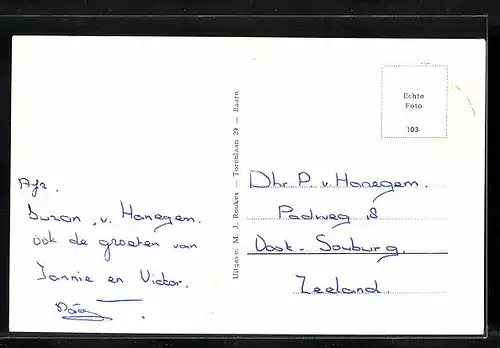 Afz.
Suzan, v. Hanegem.
ook de groeten van
Jannie en Victor.
Uitgave: M. J. Roukes — Torenlaan 29 — Baarn
Echte
Foto
103
Dhr P. v. Hanegem.
Padweg 18
Oost-Souburg.
Zeeland.